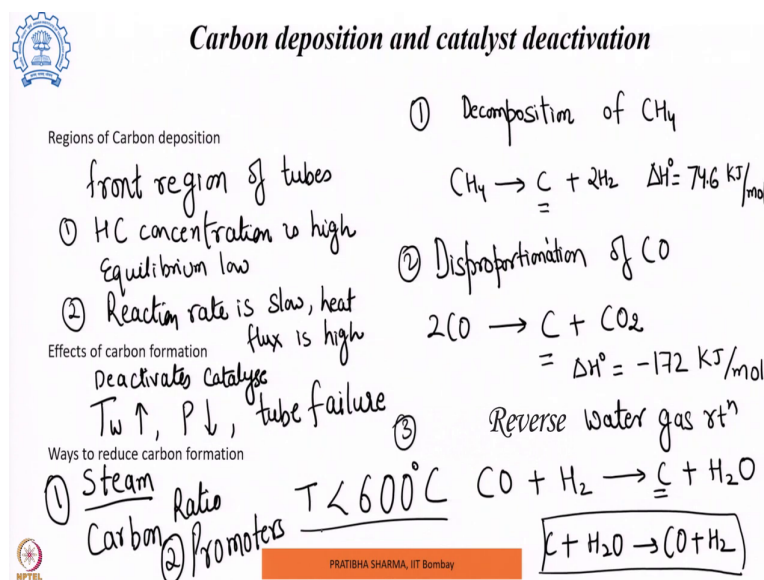 Carbon deposition and catalyst deactivation
Regions of Carbon deposition
front region of tubes
① HC concentration is high
Equilibrium low
② Reaction rate is slow, heat
flux is high
Effects of carbon formation
Deactivates Catalyse
Tw ↑, P ↓, tube failure
Ways to reduce carbon formation
① Steam
Carbon Ratio
② Promoters
T < 600°C
① Decomposition of CH4
CH4 → C + 2H2 ΔH° = 74.6 KJ/mo
② Disproportionation of CO
2CO → C + CO2
ΔH° = -172 KJ/mol
③ Reverse water gas rtn
CO + H2 → C + H2O
C + H2O → CO + H2
PRATIBHA SHARMA, IIT Bombay
NPTEL